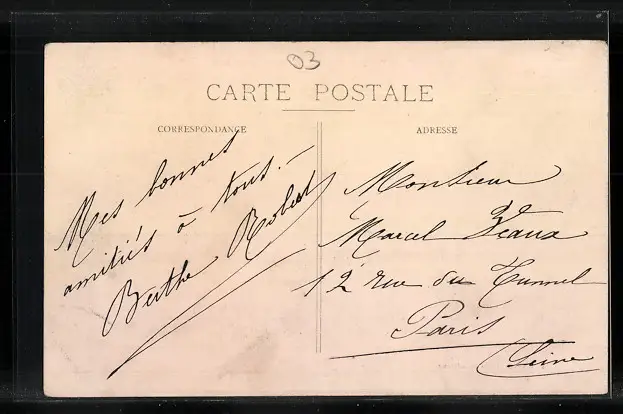 03
CARTE POSTALE
CORRESPONDANCE
Mes bonnes
amitiés à tous. —
Berthe Robert
ADRESSE
Monsieur
Marcel
12 rue du Tunnel
Paris
Seine